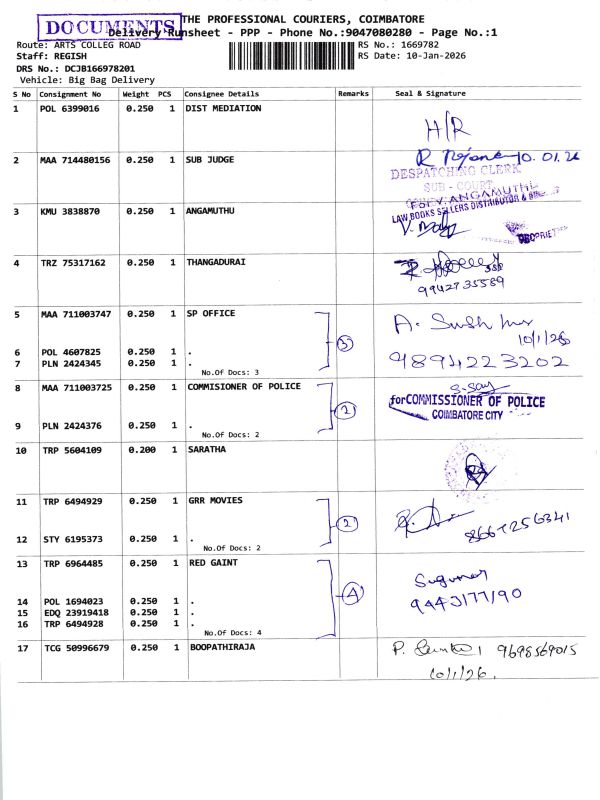 DOCUMENTS
THE PROFESSIONAL COURIERS, COIMBATORE
Delivery Runsheet - PPP - Phone No.:9047080280 - Page No.:1
Route: ARTS COLLEG ROAD RS No.: 1669782
Staff: REGISH RS Date: 10-Jan-2026
DRS No.: DCJB166978201
Vehicle: Big Bag Delivery
S No Consignment No Weight PCS Consignee Details Remarks Seal & Signature
1 POL 6399016 0.250 1 DIST MEDIATION
H/R
2 MAA 714480156 0.250 1 SUB JUDGE
10.01.26
DESPATCHING CLERK
SUB - COURT
3 KMU 3838870 0.250 1 ANGAMUTHU
For V. ANGAMUTHU
LAW BOOKS SELLERS DISTRIBUTOR &
PROPRIET
4 TRZ 75317162 0.250 1 THANGADURAI
9942735589
5 MAA 711003747 0.250 1 SP OFFICE
10/1/26
6 POL 4607825 0.250 1 .
3
7 PLN 2424345 0.250 1 .
9894223202
No.Of Docs: 3
8 MAA 711003725 0.250 1 COMMISIONER OF POLICE
for COMMISSIONER OF POLICE
COIMBATORE CITY
2
9 PLN 2424376 0.250 1 .
No.Of Docs: 2
10 TRP 5604109 0.200 1 SARATHA
11 TRP 6494929 0.250 1 GRR MOVIES
2
8667256341
12 STY 6195373 0.250 1 .
No.Of Docs: 2
13 TRP 6964485 0.250 1 RED GAINT
4
14 POL 1694023 0.250 1 .
9443177190
15 EDQ 23919418 0.250 1 .
16 TRP 6494928 0.250 1 .
No.Of Docs: 4
17 TCG 50996679 0.250 1 BOOPATHIRAJA
9698569015
10/1/26.